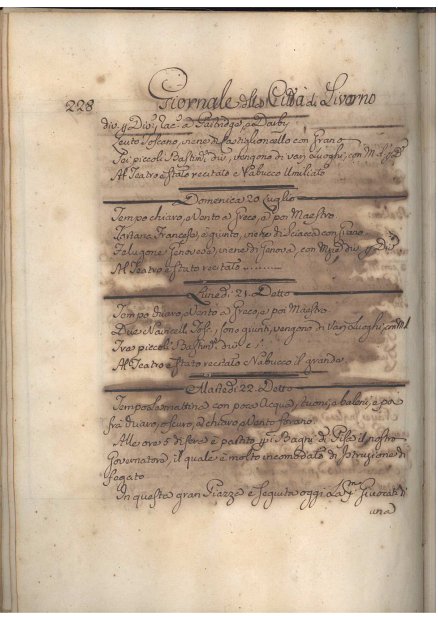 228 Giornale della Città di Livorno
div. 
Leuto Toscano, viene di Castiglioncello con Grano
Sei piccoli Bastim.ti div., vengono di varj luoghi, con M.
Al Teatro è stato recitato e Nabucco Umiliato
Domenica 20 Luglio
Tempo chiaro, e Vento a Greco, e poi Maestro
Tartana Francese, è giunto, viene di Sciacca con Grano
Feluzone Genovese, viene di Genova, con
Al Teatro è stato recitato ..........
Lunedi 21. Detto
Tempo chiaro, e Vento a Greco, e poi Maestro
Due Navicell. sono giunti, vengono di varj Luoghi, con
Tre piccoli Bastim.ti
Al Teatro è stato recitato Nabucco il grande
Martedi 22. Detto
Tempo la mattina con poca Acqua, tuoni, e baleni, e poi
frà chiaro, e scuro, e Vento
Alle ore 5 di sera è partito p. i Bagni di Pisa il nostro
Governatore, il quale è molto incomodato di Ostruzione di
fegato
In questa gran Piazza è seguita oggi
una